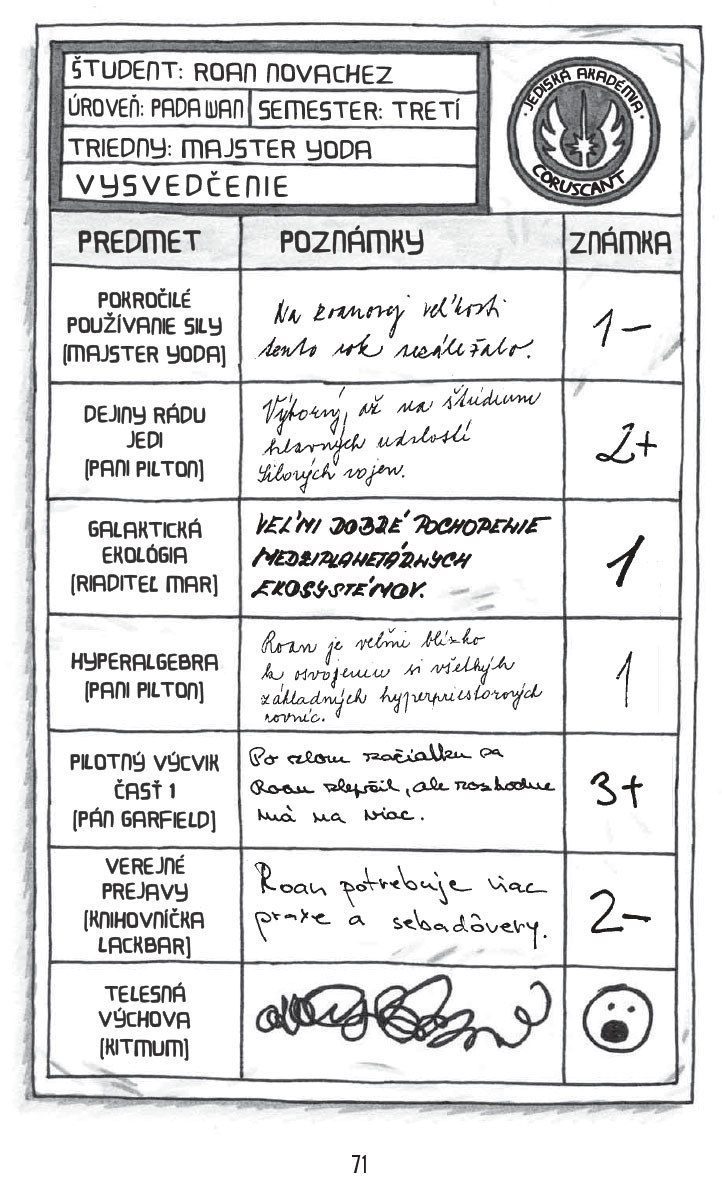 ŠTUDENT: ROAN NOVACHEZ
ÚROVEŇ: PADAWAN SEMESTER: TRETÍ
TRIEDNY: MAJSTER YODA
VYSVEDČENIE
JEDISKÁ AKADÉMIA
CORUSCANT
PREDMET POZNÁMKY ZNÁMKA
POKROČILÉ
POUŽÍVANIE SILY
(MAJSTER YODA)
Na Roanovej veľkosti
tento rok nezáležalo.
1-
DEJINY RÁDU
JEDI
(PANI PILTON)
Výborný, až na štúdium
hlavných udalostí
Silových vojen.
2+
GALAKTICKÁ
EKOLÓGIA
(RIADITEĽ MAR)
VEĽMI DOBRÉ POCHOPENIE
MEDZIPLANETÁRNYCH
EKOSYSTÉMOV.
1
HYPERALGEBRA
(PANI PILTON)
Roan je veľmi blízko
k osvojeniu si všetkých
základných hyperpriestorových
rovníc.
1
PILOTNÝ VÝCVIK
ČASŤ 1
(PÁN GARFIELD)
Po zlom začiatku sa
Roan zlepšil, ale rozhodne
má na viac.
3+
VEREJNÉ
PREJAVY
(KNIHOVNÍČKA
LACKBAR)
Roan potrebuje viac
praxe a sebadôvery.
2-
TELESNÁ
VÝCHOVA
(KITMUM)
71